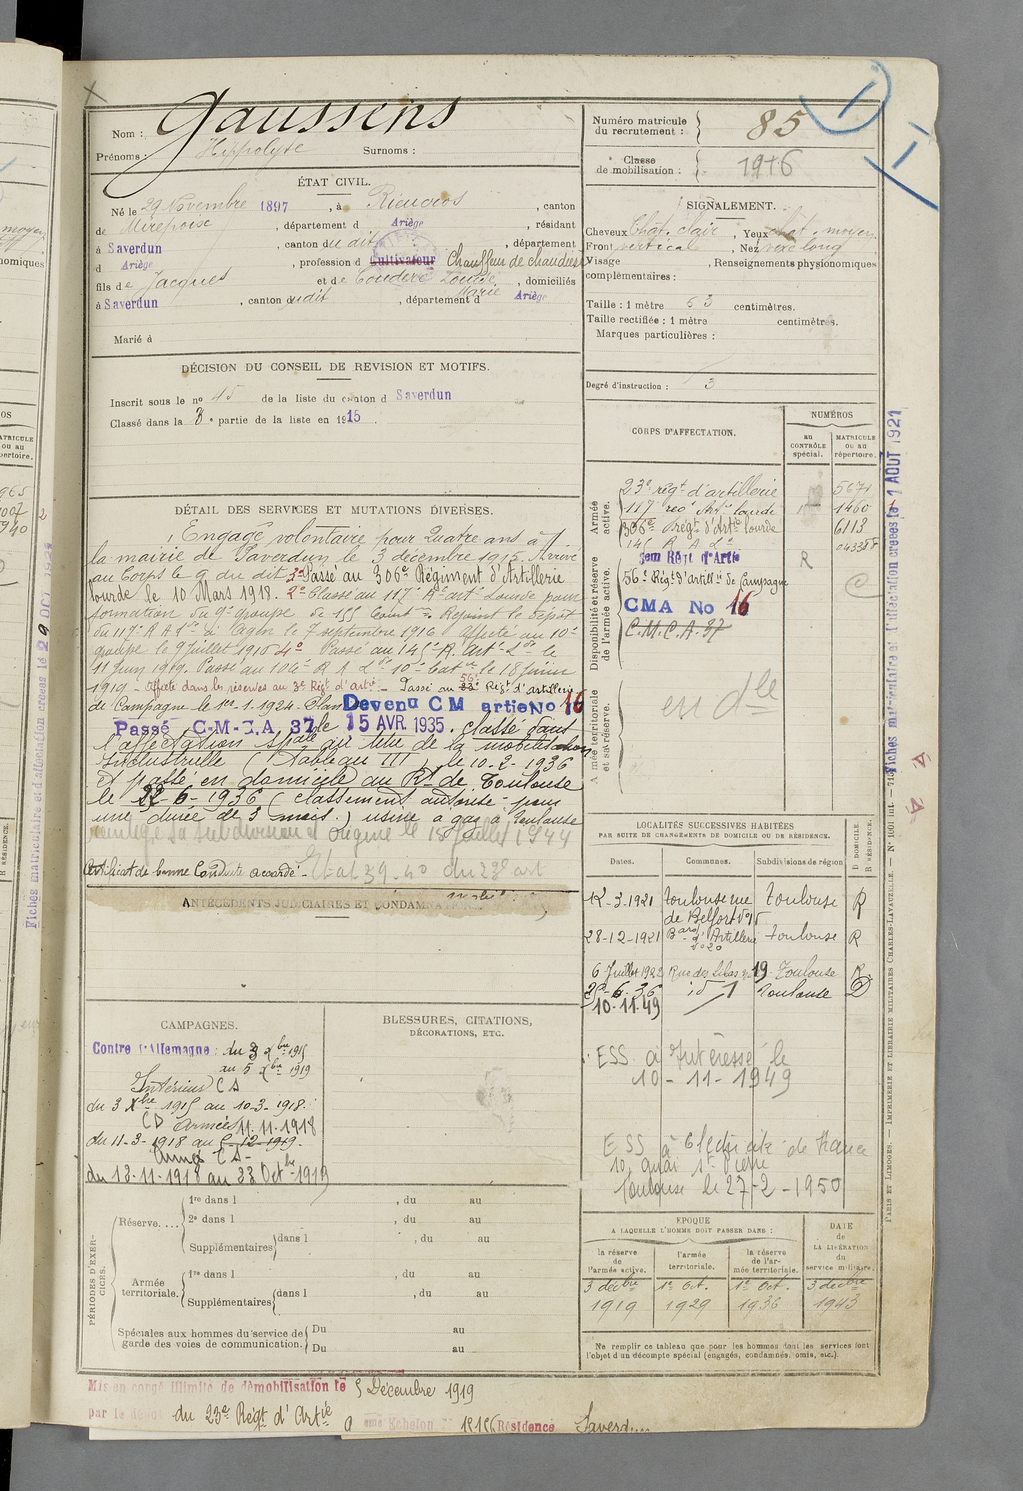 Gaussens
Nom :
Prénoms : Hippolyte Surnoms :
Numéro matricule du recrutement : 85
Classe de mobilisation : 1916
ÉTAT CIVIL.
Né le 29 Novembre 1897, à Rieucros, canton
de Mirepoix, département d Ariège, résidant
à Saverdun, canton du dit, département
d Ariège, profession d Cultivateur Chauffeur de chaudières
fils de Jacques et de Couderc Louise Marie, domiciliés
à Saverdun, canton dudit, département d Ariège
Marié à
SIGNALEMENT.
Cheveux Chat. clair, Yeux chat. moyen
Front vertical, Nez rect. long
Visage , Renseignements physionomiques
complémentaires :
Taille : 1 mètre 63 centimètres.
Taille rectifiée : 1 mètre centimètres.
Marques particulières :
Degré d'instruction : 3
DÉCISION DU CONSEIL DE REVISION ET MOTIFS.
Inscrit sous le no 45 de la liste du canton d Saverdun
Classé dans la 3e partie de la liste en 1915
DÉTAIL DES SERVICES ET MUTATIONS DIVERSES.
Engagé volontaire pour Quatre ans à
la mairie de Saverdun le 3 décembre 1915. Arrivé
au Corps le 9 du dit. 3° Passé au 306e Régiment d'Artillerie
Lourde le 10 Mars 1918. 2° Classé au 117e Rt art Lourde pour
formation du 9e groupe de 155 Court. Rejoint le dépôt
du 117e R A Lde à Agen le 7 septembre 1916. Affecté au 10e
groupe le 9 juillet 1916 4° Passé au 145e R. Art. Lde le
11 Juin 1919. Passé au 106e R A Lde 10e Batie le 18 Juin
1919 - Affecté dans les réserves au 3e Régt d'artie - Passé au 56e Régt d'artillerie
de Campagne le 1er. 1. 1924. Devenu CM artie No 16
Passé C.M.C.A. 37 le 15 AVR 1935. Classé dans
l'affectation spale au titre de la mobilisation
industrielle (Tableau III) le 10-2-1936
Et passé en domicile au Rt de Toulouse
le 22-6-1936 (classement autorisé pour
une durée de 3 mois.) usine à gaz à Toulouse
la subdivision d'origine le 15 Juillet 1944
Certificat de bonne Conduite accordé - Etat 39-40 du 23e art
ANTÉCÉDENTS JUDICIAIRES ET CONDAMNATIONS
CORPS D'AFFECTATION.
NUMÉROS
au CONTRÔLE spécial.
MATRICULE ou au répertoire.
Armée active.
23e régt d'artillerie 5671
117e reg Art. lourde 1460
306e Regt d'Artie lourde 6113
145 R A Ld 043388
Disponibilité et réserve de l'armée active.
3em Régt d'Artie R
56e Régt d'artillie de Campagne
CMA No 16
C.M.C.A. 37
Armée territoriale et sa réserve.
en dle
LOCALITÉS SUCCESSIVES HABITÉES
PAR SUITE DE CHANGEMENTS DE DOMICILE OU DE RÉSIDENCE.
Dates. Communes. Subdivisions de région. D DOMICILE. R RÉSIDENCE.
12-3-1921 Toulouse rue de Belfort Toulouse R
28-12-1921 Bard d'Artillerie No 20 Toulouse R
6 Juillet 1922 Rue des Lilas 19 Toulouse R
22-6-36 id Toulouse D
10.11.49
ESS à Intéressé le
10-11-1949
ESS à Electricité de France
10 quai St Pierre
Toulouse le 27-2-1950
CAMPAGNES.
Contre l'Allemagne : du 3 Xbre 1915
au 5 Xbre 1919
Intérieur CS
du 3 Xbre 1915 au 10-3-1918.
CD Armées 11.11.1918
du 11-3-1918 au 5-12-1919.
Armées CS
du 12-11-1918 au 23 Octbre 1919
BLESSURES, CITATIONS,
DÉCORATIONS, ETC.
PÉRIODES D'EXERCICES.
Réserve....
1re dans l , du au
2e dans l , du au
Supplémentaires dans l , du au
Armée territoriale.
1re dans l , du au
Supplémentaires dans l , du au
Spéciales aux hommes du service de garde des voies de communication.
Du au
Du au
ÉPOQUE
A LAQUELLE L'HOMME DOIT PASSER DANS :
la réserve de l'armée active. l'armée territoriale. la réserve de l'armée territoriale.
DATE de LA LIBÉRATION du service militaire.
3 décbre 1919 1er Oct. 1929 1er Oct. 1936 3 décbre 1943
Ne remplir ce tableau que pour les hommes dont les services font
l'objet d'un décompte spécial (engagés, condamnés, omis, etc.).
Mis en congé illimité de démobilisation le 5 Décembre 1919
par le dépôt du 23e Régt d'Artie
Echelon Résidence Saverdun
Fiches matriculaire et d'affectation créées le 1 AOUT 1921
Fiches matriculaire et d'affectation créées le 29 OCT 1921
PARIS ET LIMOGES. — IMPRIMERIE ET LIBRAIRIE MILITAIRES CHARLES-LAVAUZELLE.